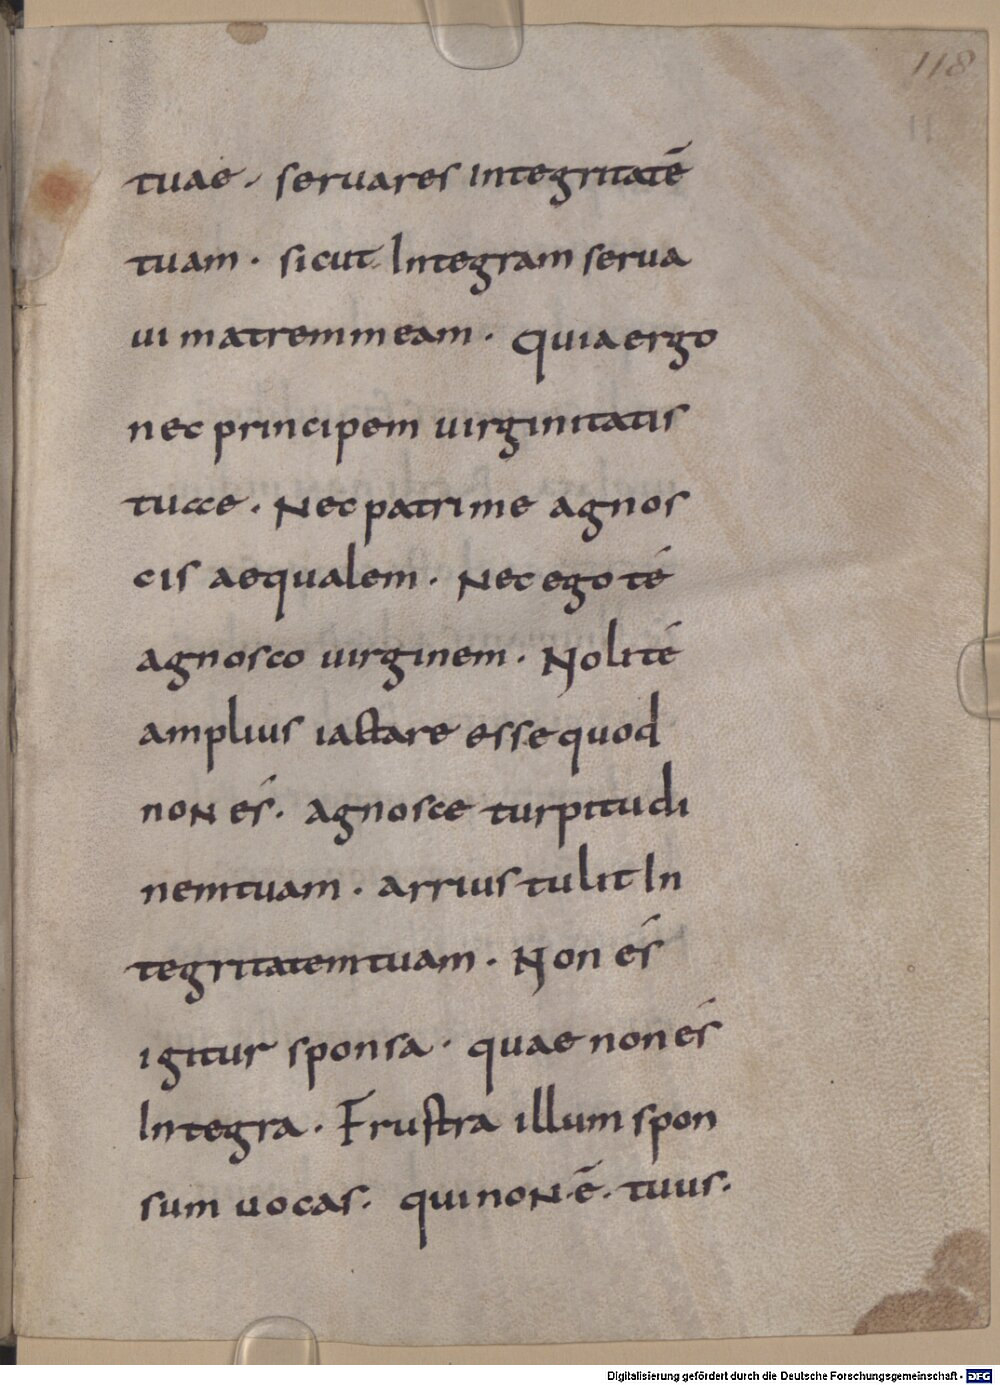 118
11
tuae · seruares integritatē
tuam · sicut Integram serua
ui matrem meam · quia ergo
nec principem uirginitatis
tuae · Nec patri me agnos
cis aequalem · Nec ego té
agnosco uirginem · Noli té
amplius iactare esse quod
non és · agnosce turpitudi
nem tuam · arrius tulit In
tegritatem tuam · Non és
igitur sponsa · quae non és
Integra · Frustra illum spon
sum uocas · qui non · ē · tuus ·
Digitalisierung gefördert durch die Deutsche Forschungsgemeinschaft - DFG